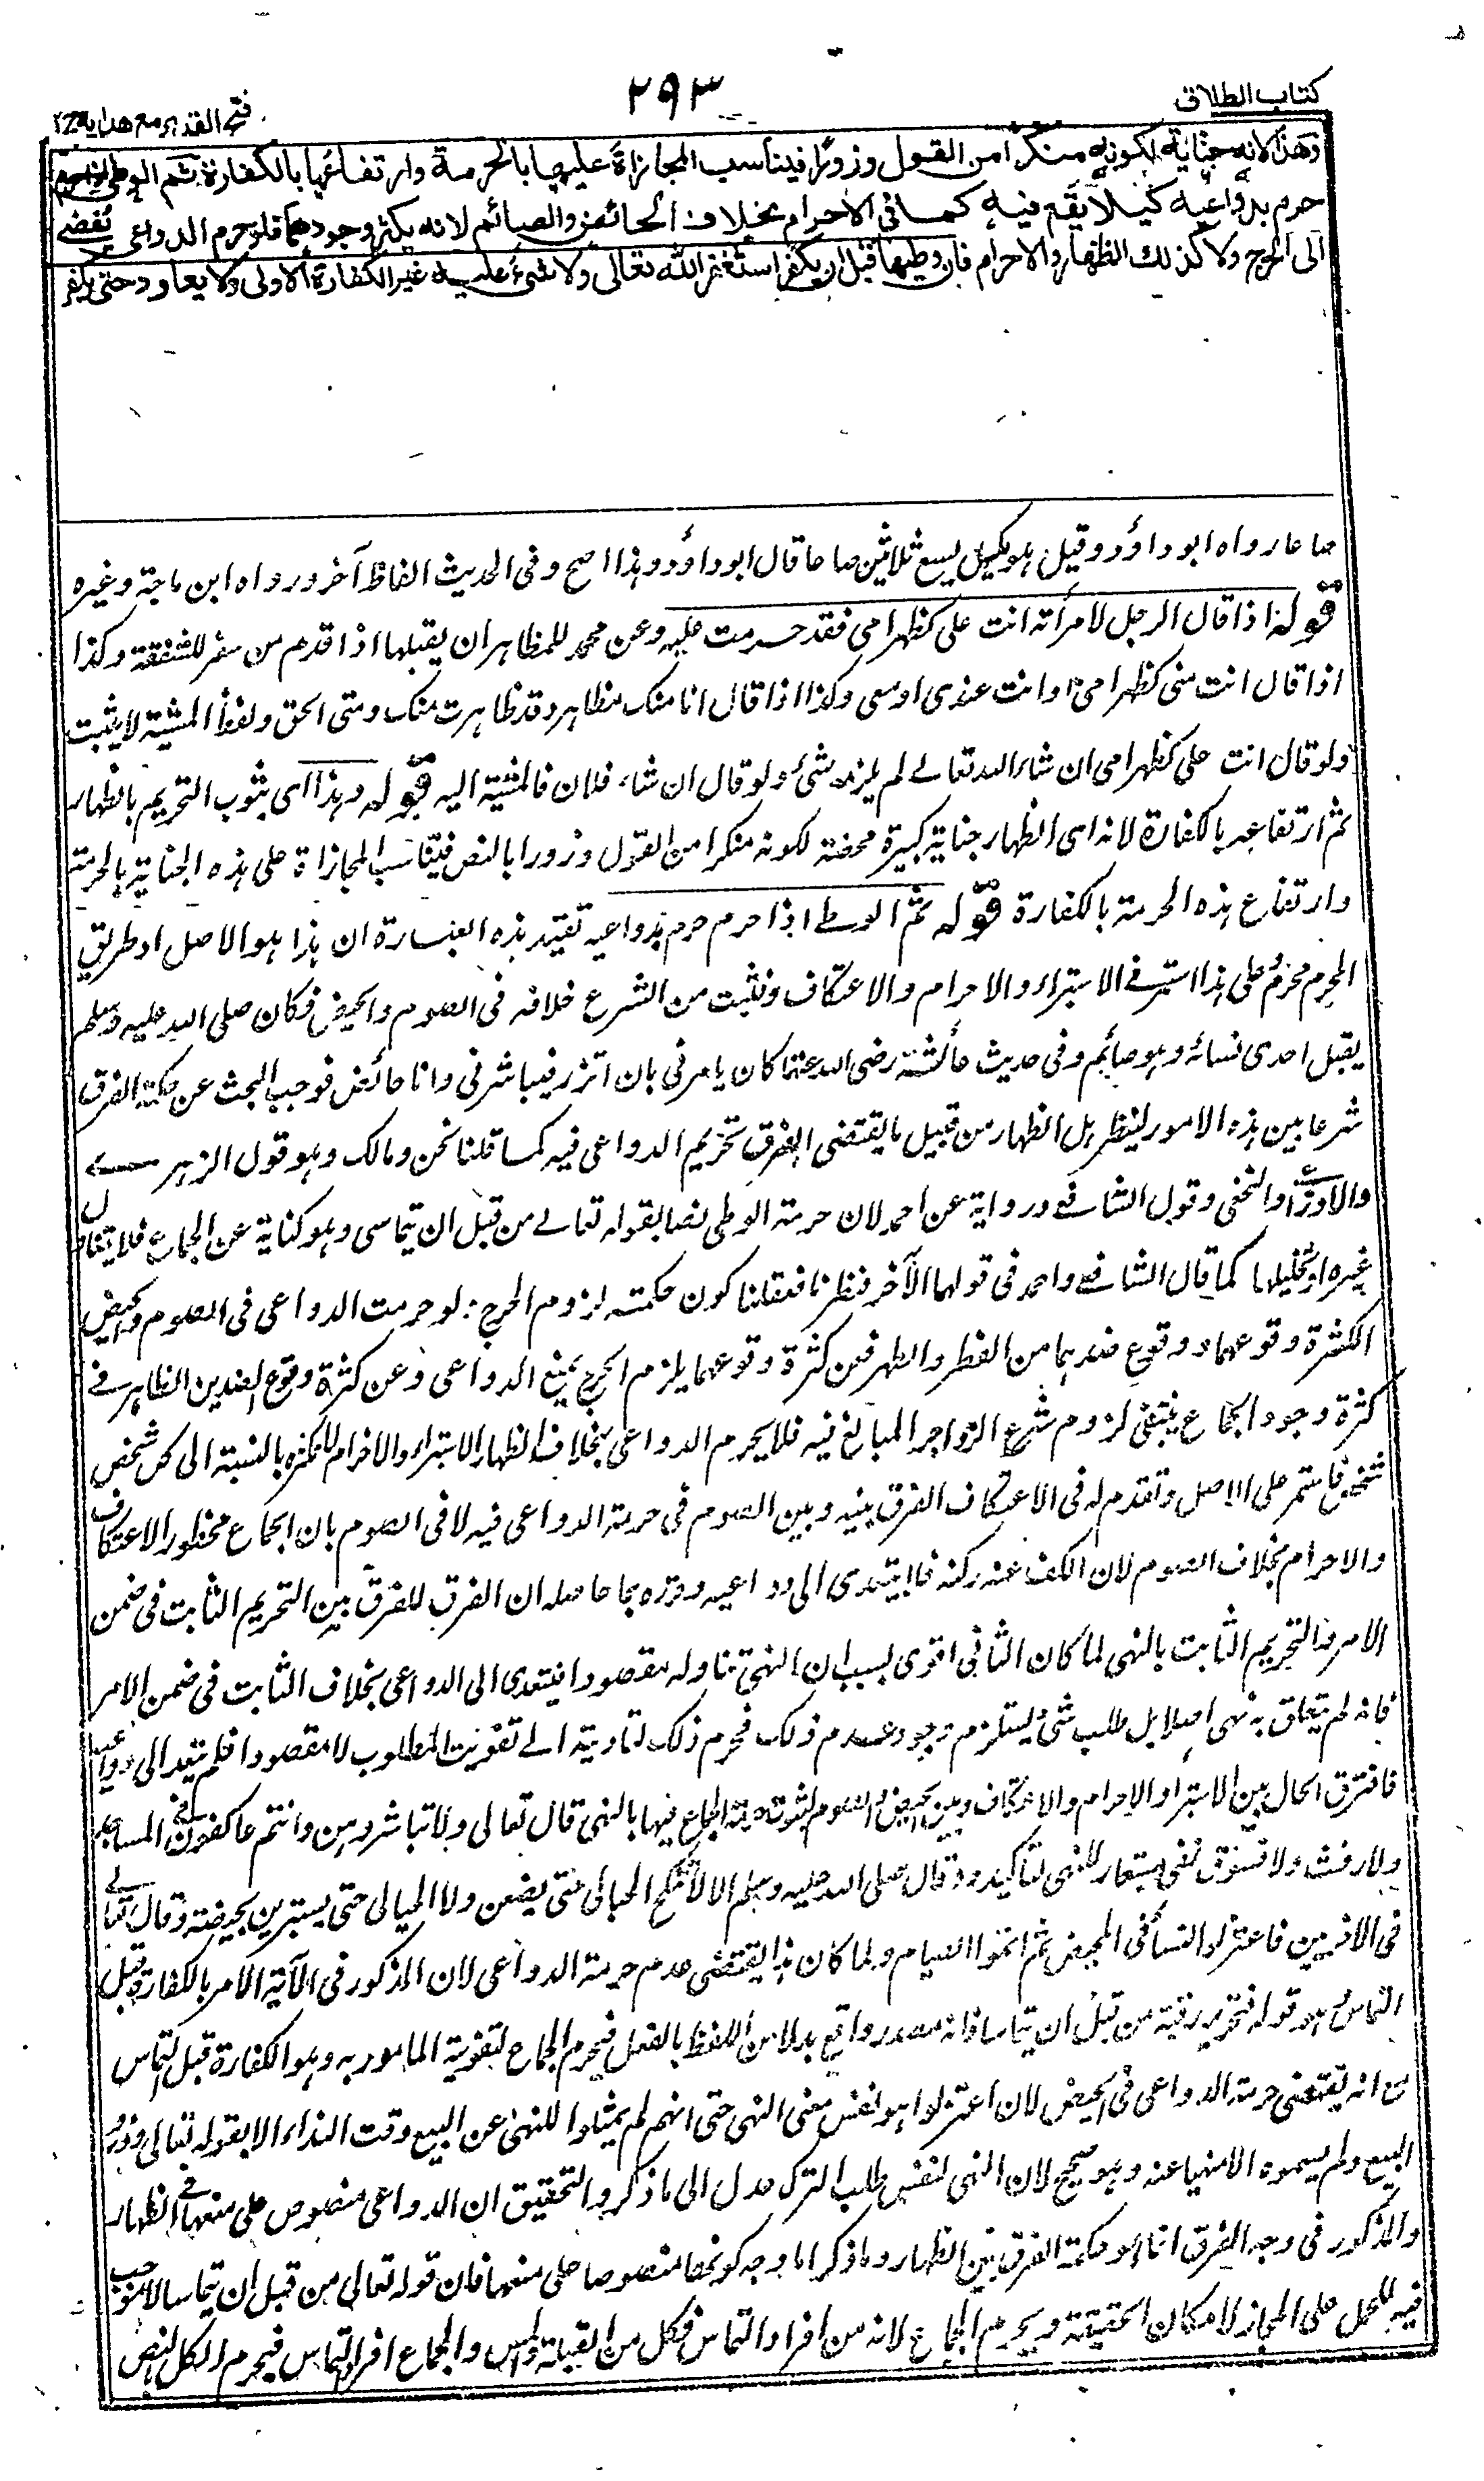 كتاب الطلاق
٢٩٣
فتح القدير مع هدايه ج٢
وهذا لانه جناية لكونه منكرا من القول وزورا فيناسب المجازاة عليها بالحرمة وارتفاعها بالكفارة ثم الوطي اذا حرم
حرم بدواعيه كيلا يقع فيه كما في الاحرام بخلاف الحائض والصائم لانه يكثر وجودهما فلو حرم الدواعي يفضي
الى الحرج ولا كذلك الظهار والاحرام فان وطيها قبل ان يكفر استغفر الله تعالى ولا شيء عليه غير الكفارة الاولى ولا يعاود حتى يكفر
صاعا رواه ابو داؤد وقيل هو مكيل يسع ثلاثين صاعا قال ابو داؤد وهذا اصح وفي الحديث الفاظ آخر ورواه ابن ماجة وغيره
قوله اذا قال الرجل لامرأته انت على كظهر امي فقد حرمت عليه وعن محمد للمظاهر ان يقبلها اذا قدم من سفر للشفقة وكذا
اذا قال انت مني كظهر امي او انت عندي او معي وكذا اذا قال انا منك مظاهر وقد ظاهرت منك ومتى الحق ولفظ المشية لا يثبت
ولو قال انت على كظهر امي ان شاء الله تعالے لم يلزمه شئ ولو قال ان شاء فلان فالمشية اليه قوله وهذا اى ثبوت التحريم بالظهار
ثم ارتفاعه بالكفارة لانه اى الظهار جناية كبيرة محضة لكونه منكرا من القول وزورا بالنص فيناسب المجازاة على هذه الجناية بالحرمة
وارتفاع هذه الحرمة بالكفارة قوله ثم الوطے اذا حرم حرم بدواعيه تفيد هذه العبارة ان هذا هو الاصل اذ طريق
المحرم محرم وعلى هذا استمر في الاستبراء والاحرام والاعتكاف وثبت من الشرع خلافه في الصوم والحيض فكان صلى الله عليه وسلم
يقبل احدى نسائه وهو صائم وفي حديث عائشة رضى الله عنها كان يامرني بان اتزر فيباشرني وانا حائض فوجب البحث عن حكمة الفرق
شرعا بين هذه الامور لينظر هل الظهار من قبيل ما يقتضى الفرق تحريم الدواعى فيه كما قلنا نحن ومالك وهو قول الزهرے
والاوزاعى والنخعى وقول الشافعے ورواية عن احمد لان حرمة الوطى نصا بقوله تعالے من قبل ان يتماسا وهو كناية عن الجماع فلا يتناول
غيره او تحليلها كما قال الشافعے واحمد في قولهما الآخر فنظرنا فعقلنا كون حكمته لزوم الحرج لو حرمت الدواعى في الصوم والحيض
الكثرة وقوعهما ووقوع ضدهما من الفطر والطهر فعن كثرة وقوعهما يلزم الحرج بمنع الدواعى وعن كثرة وقوع الضدين الظاهر في
كثرة وجود الجماع ينتفى لزوم شرع الزواجر المبالغ فيه فلا يحرم الدواعى بخلاف الظهار والاستبراء والاحرام لا يكثر بالنسبة الى كل شخص
شخص فاستمر على الاصل وتقدم له في الاعتكاف الفرق بينه وبين الصوم في حرمة الدواعى فيه لا في الصوم بان الجماع محظور الاعتكاف
والاحرام بخلاف الصوم لان الكف عنه ركنه فلا يتعدى الى دواعيه وقرره بما حاصله ان الفرق للفرق بين التحريم الثابت في ضمن
الامر والتحريم الثابت بالنهى لما كان الثاني اقوى بسبب ان النهى تناوله مقصودا فيتعدى الى الدواعى بخلاف الثابت في ضمن الامر
فانه لم يتعلق به نهى اصلا بل طلب شئ يستلزم وجوده عدم ذلك فحرم ذلك لتاديته الے تفويت المطلوب لا مقصودا فلم يتعد الى دواعيه
فافترق الحال بين الاستبراء والاحرام والاعتكاف وبين الحيض والصوم لثبوت حرمة الجماع فيها بالنهى قال تعالى ولا تباشروهن وانتم عاكفون في المساجد
ولا رفث ولا فسوق نفى يستعار للنهى لتاكيده وقال صلى الله عليه وسلم الا لا تنكح الحبالى حتى يضعن ولا الحيالى حتى يستبرين بحيضة وقال تعالے
في الاخريين فاعتزلوا النساء في المحيض ثم اتموا الصيام ولما كان هذا يقتضى عدم حرمة الدواعى لان المذكور في الآية الامر بالكفارة قبل
التماس وهو قوله فتحرير رقبة من قبل ان يتماسا فانه مصدر واقع بدلا من اللفظ بالفعل فيحرم الجماع لتفويته المامور به وهو الكفارة قبل التماس
مع انه يقتضى حرمة الدواعى في الحيض لان اعتزلوا هو نفس معنى النهى حتى انهم لم يمثلوا للنهى عن البيع وقت النداء الا بقوله تعالى وذروا
البيع ولم يسموه الا منهيا عنه وهو صحيح لان النهى لنفس طلب الترك عدل الى ما ذكر والتحقيق ان الدواعى منصوص على منعها في الظهار
والمذكور في وجه الفرق انما هو حكمة الفرق بين الظهار وما ذكر اما وجه كونها منصوصا على منعها فان قوله تعالى من قبل ان يتماسا لا موجب
فيه للحمل على المجاز لامكان الحقيقة ويحرم الجماع لانه من افراد التماس فكل من القبلة والمس والجماع افراد التماس فيحرم الكل بالنص